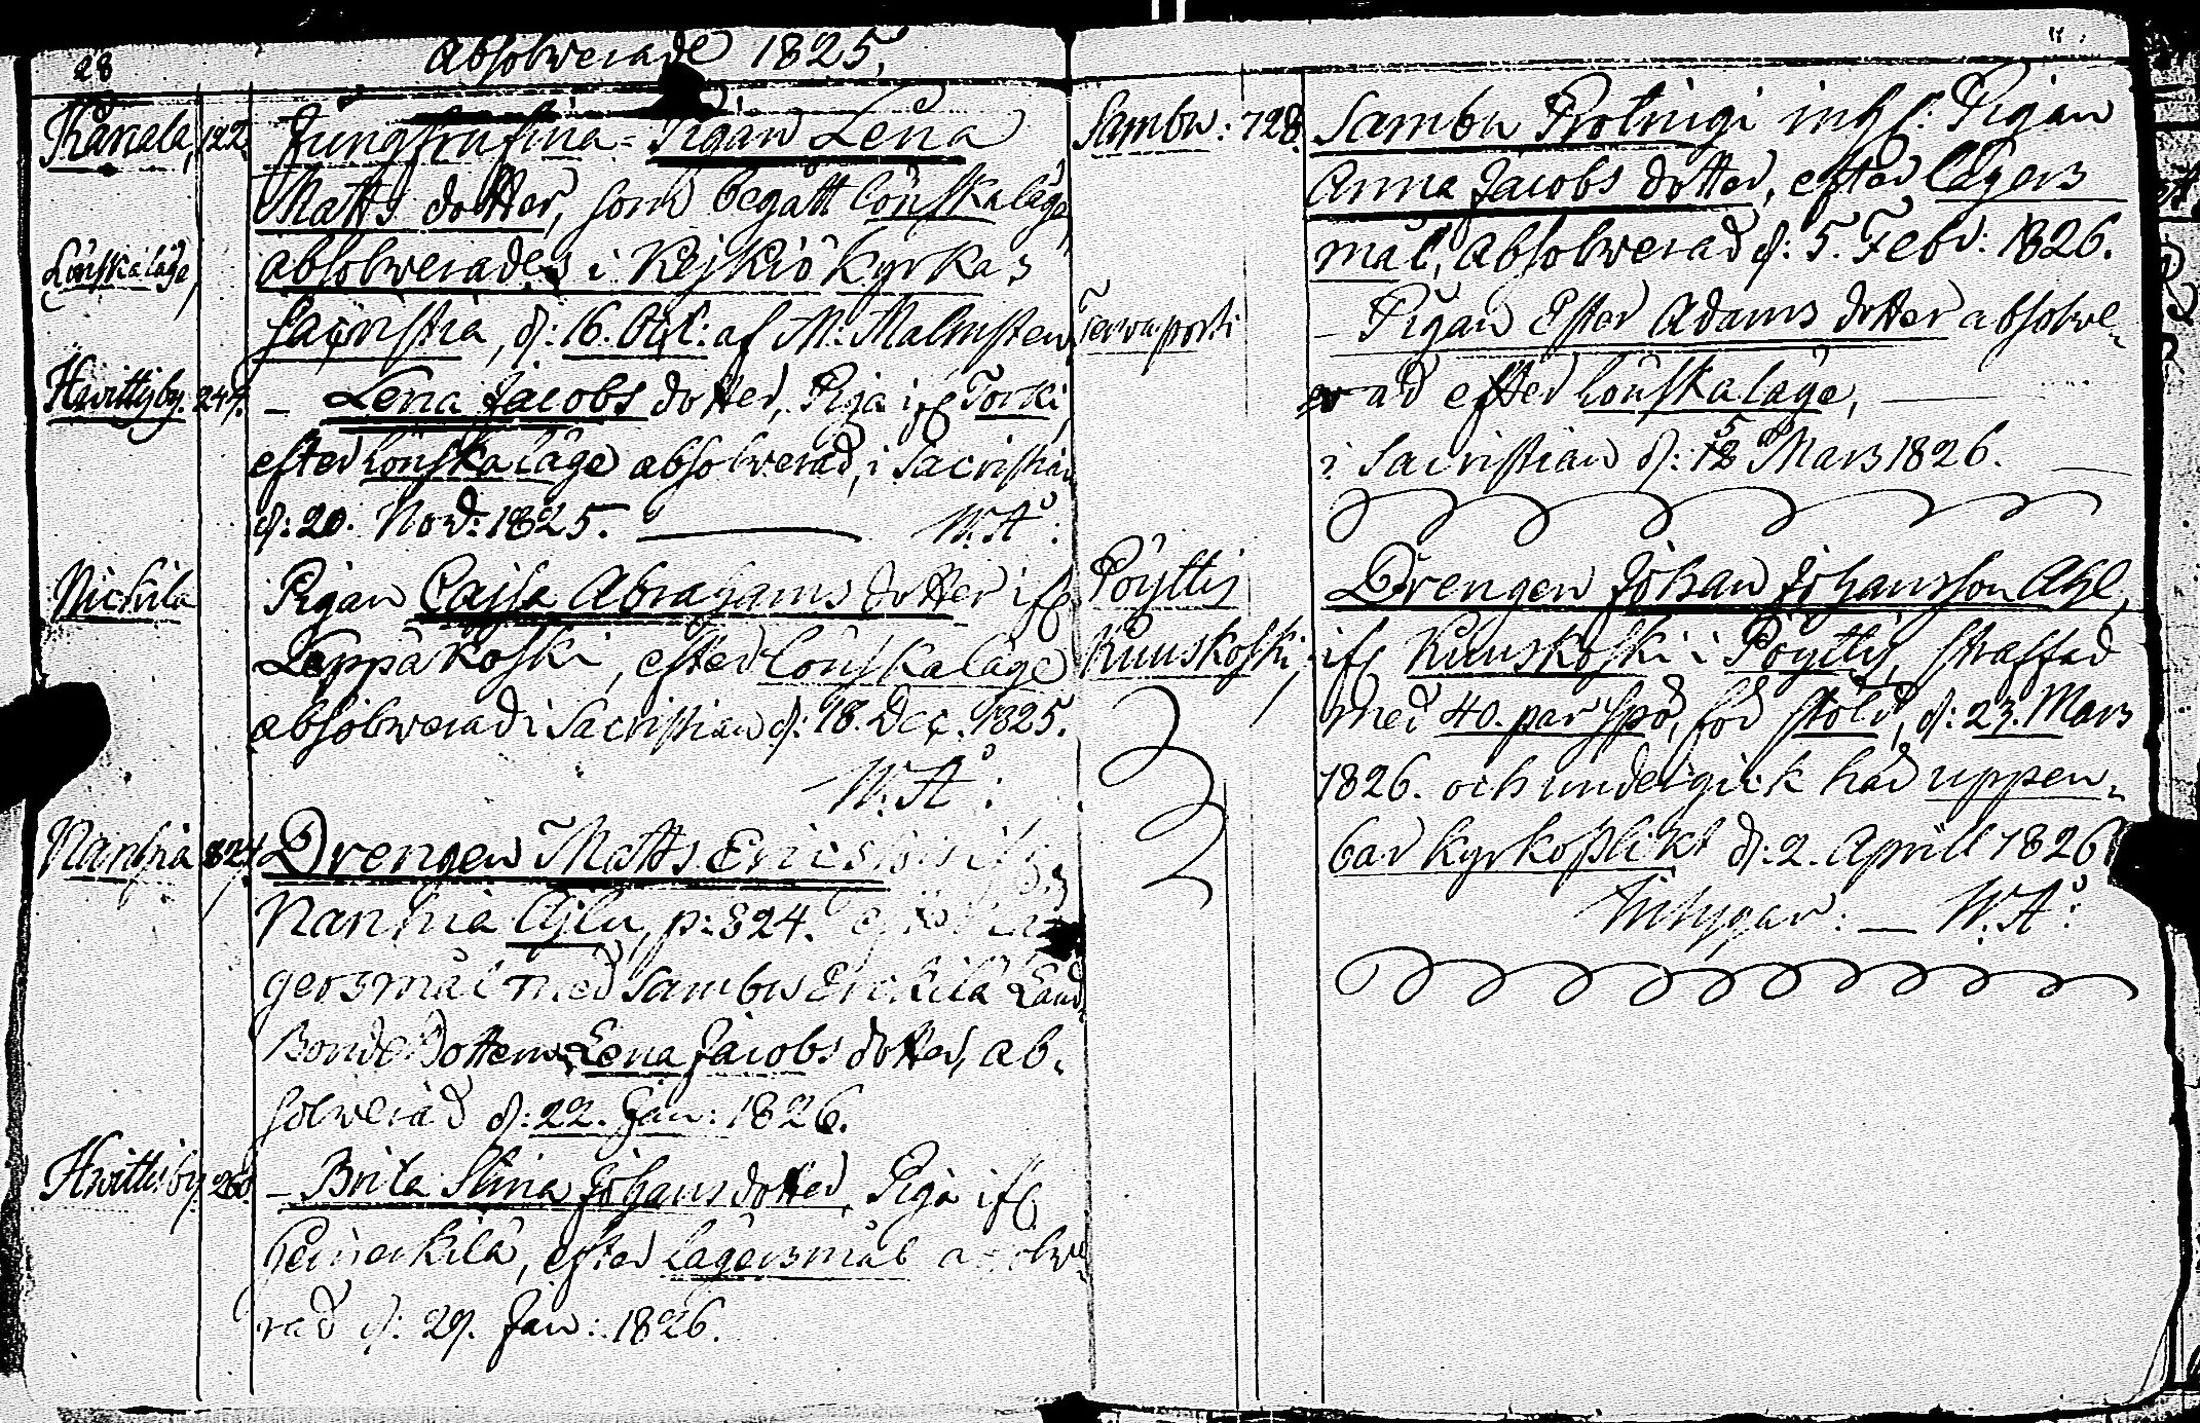 28
Absolverade 1825.
Karsala, 122.
Jungfrufina - Pigan Lena
Matts dotter, som begått lönskaläge
Lönskaläge,
absolverades i Keikiö Kyrkas
Sacristia, d: 16. Oct: af M: Malmsten
Hwittisby. 244.
- Lena Jacobs dotter, Piga ifr Torki,
efter lönskaläge absolverad, i Sacristian
d: 20. Nov: 1825. W. A:
Nickila
Pigan Cajsa Abrahams dotter ifr
Leppäkoski, efter lönskaläge
absolverad i Sacristian d: 18. Dec. 1825.
W. A:
Nanhia 824.
Drengen Matts Ericsson ifr
Nanhia Äjlu, p: 824.
gersmål med Sambu Erkilä Land
Bonde Dottern, Lena Jacobs dotter, ab-
solverad d: 22. Jan: 1826.
Hwittisby 260.
- Brita Stina Johans dotter, Piga ifr
efter lägersmål absolve
rad d: 29. Jan: 1826.
Sambu: 728.
Sambu inhs: Pigan
Anna Jacobs dotter, efter lägers
mål, absolverad d: 5. Febr: 1826.
- Pigan Ester Adams dotter absolve-
rad efter lönskaläge,
i Sacristian d: 5 Mars 1826.
Pöyttis
Drengen Johan Johansson Ahl,
Kuuskoski,
ifr Kuuskoski i Pöyttis, straffad
med 40. par spö, för stöld, d: 23. Mars
1826. och undergick här uppen-
bar kyrkoplikt d: 2. Aprill 1826
W. A: